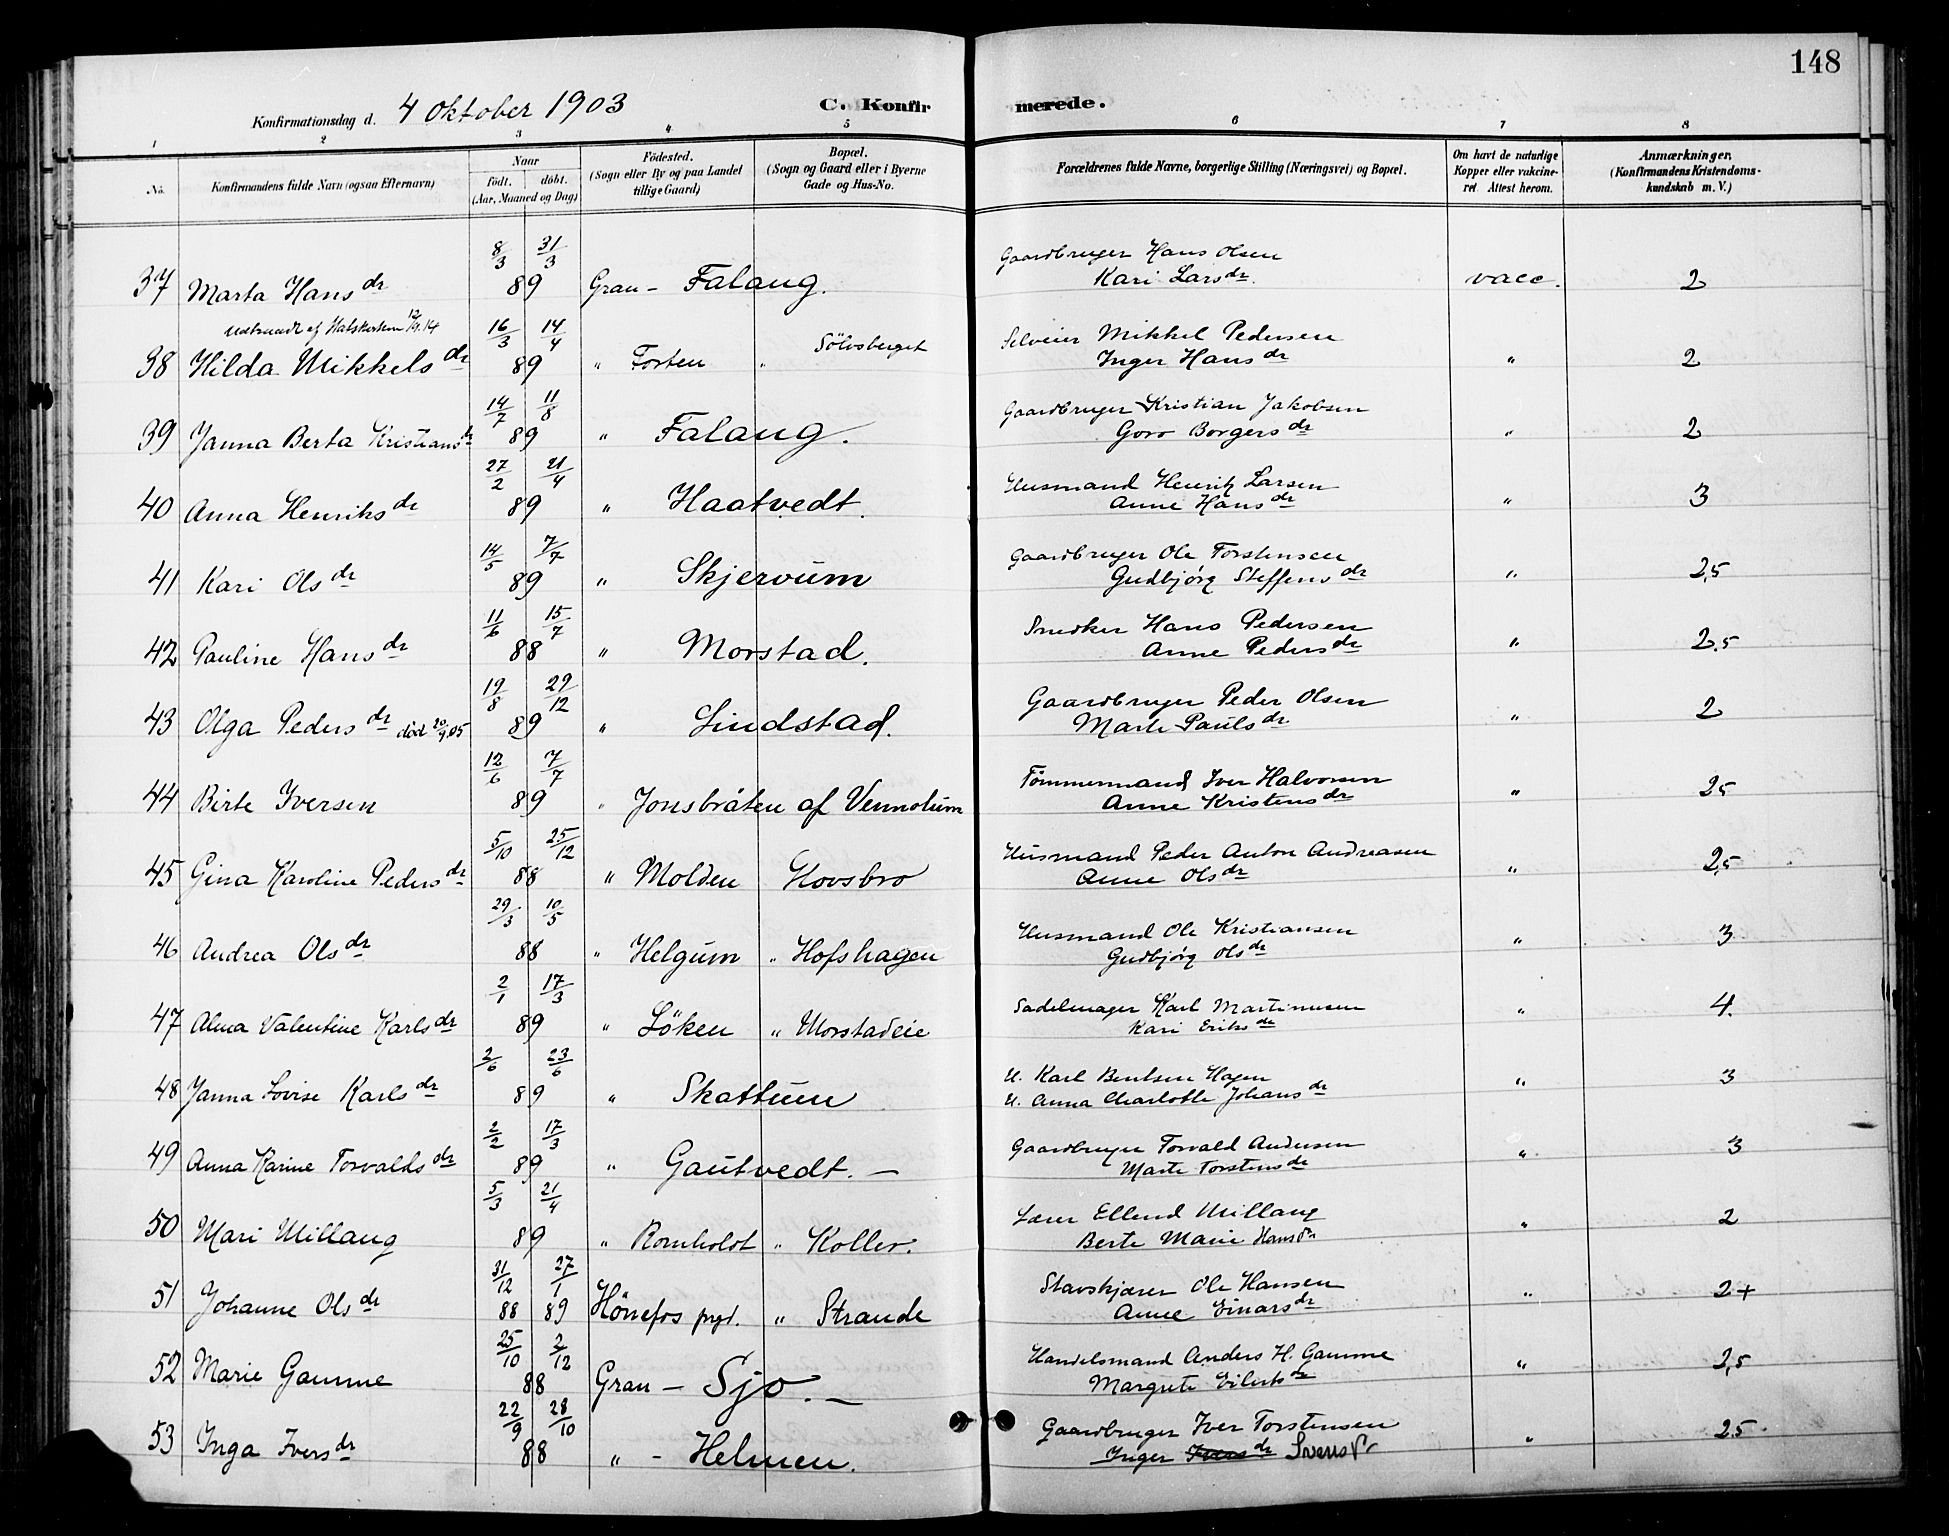 148
Konfirmationsdag d. 4 Oktober 1903 C. Konfirmerede.
1 2 3 4 5 6 7 8
No. Konfirmandens fulde Navn (ogsaa Efternavn) Naar födt. döbt. (Aar, Maaned og Dag) Födested. (Sogn eller By og paa Landet tillige Gaard) Bopæl. (Sogn og Gaard eller i Byerne Gade og Hus-No. Forældrenes fulde Navne, borgerlige Stilling (Næringsvei) og Bopæl. Om havt de naturlige Kopper eller vaccineret. Attest herom. Anmærkninger. (Konfirmandens Kristendomskundskab m. V.)
37 Marta Hansdr 8/3 31/3 89 Gran - Falang. Gaardbruger Hans Olsen Kari Larsdr. vacc. 2
38 Hilda Mikkelsdr 16/3 14/4 89 " Forten " Sölvsberget Selveier Mikkel Pedersen Inger Hansdr " 2
39 Janna Berta Kristiansdr 14/7 11/8 89 " Falang. Gaardbruger Kristian Jakobsen Goro Borgersdr " 2
40 Anna Henriksdr 27/2 21/4 89 " Haatvedt. Husmand Henrik Larsen Anne Hansdr " 3
41 Kari Olsdr 14/5 7/7 89 " Skjervum Gaardbruger Ole Torstensen Gudbjörg Steffensdr " 2,5
42 Pauline Hansdr 11/6 15/7 88 " Morstad. Snedker Hans Pedersen Anne Pedersdr " 2.5
43 Olga Pedersdr död 20/9 05 19/8 29/12 89 " Lindstad. Gaardbruger Peder Olsen Marte Paulsdr " 2
44 Birte Iversen 12/6 7/7 89 " Jonsbråten af Vennolum Tömmermand Iver Halvorsen Anne Kristensdr " 25
45 Gina Karoline Pedersdr 5/10 25/12 88 " Molden Hovsbro Husmand Peder Anton Andreasen Anne Olsdr " 2,5
46 Andrea Olsdr 29/3 10/5 88 " Helgum " Hofshagen Husmand Ole Kristiansen Gudbjörg Olsdr " 3
47 Alma Valentine Karlsdr 2/1 17/3 89 " Löken " Morstadeie Sadelmager Karl Martinusen Kari Eriksdr " 4.
48 Janna Lovise Karlsdr 2/6 23/6 89 " Skattum U. Karl Bentsen Hagen U. Anna Charlotte Johansdr " 3
49 Anna Karine Torvaldsdr 2/2 17/3 89 " Gautvedt. - Gaardbruger Torvald Andersen Marte Torstensdr " 3
50 Mari Millang 5/3 21/4 89 " Romholdt " Koller. Lærer Ellend Millang Berte Marie Hansdr " 2
51 Johanne Olsdr 31/12 88 27/1 89 Hönefos prgd. " Strande Stavskjærer Ole Hansen Anne Einarsdr " 2+
52 Marie Gamme 25/10 2/12 88 Gran - Sjo. - Handelsmand Anders H. Gamme Margrete Eilertsdr " 2,5
53 Inga Iversdr 22/9 28/10 88 " - Helmen. Gaardbruger Iver Torstensen Inger Iversdr Svensdr " 25